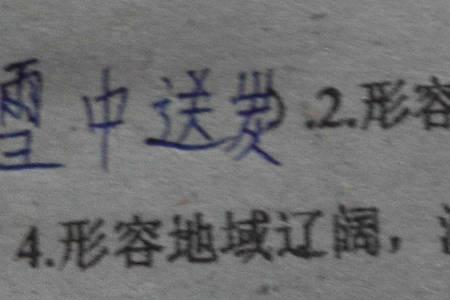 雪中送炭).2.形容
4.形容地域辽阔，